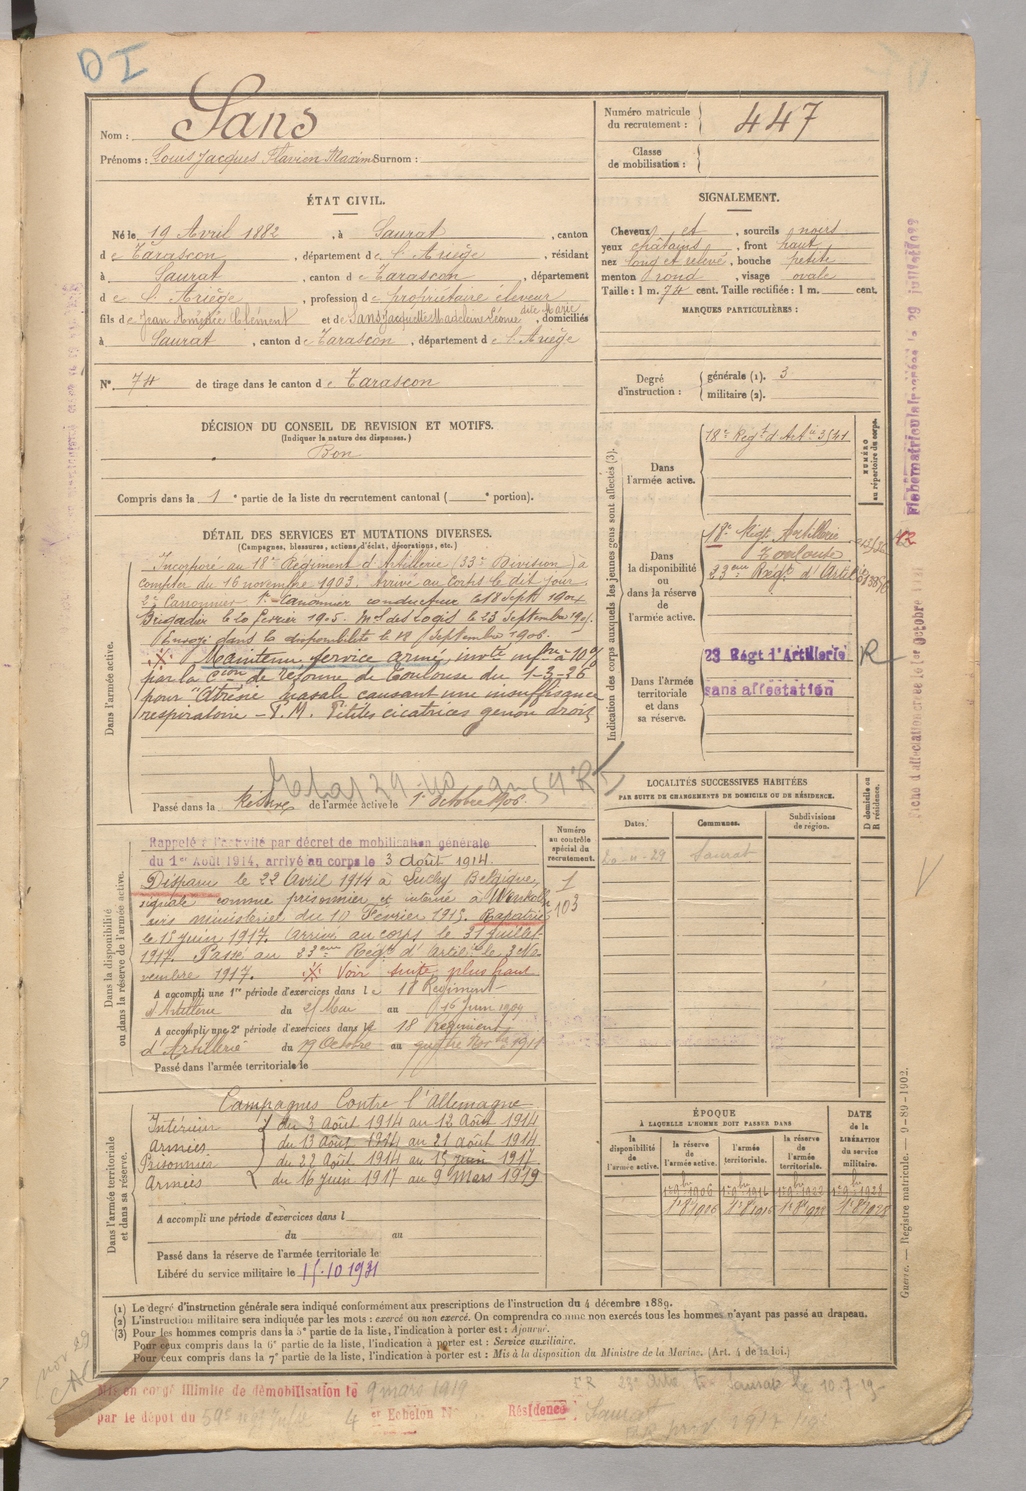 DI
Nom : Sans
Prénoms : Louis Jacques Flavien Maxim Surnom :
Numéro matricule du recrutement : 447
Classe de mobilisation :
ÉTAT CIVIL.
Né le 19 Avril 1882, à Saurat, canton
de Tarascon, département de l'Ariège, résidant
à Saurat, canton de Tarascon, département
de l'Ariège, profession de propriétaire éleveur
fils de Jean Amédée Clément et de Sans Jacquette Madelaine Léonie dite Marie, domiciliés
à Saurat, canton de Tarascon, département de l'Ariège
N° 74 de tirage dans le canton de Tarascon
SIGNALEMENT.
Cheveux et, sourcils noirs
yeux châtains, front haut
nez long et relevé, bouche petite
menton rond, visage ovale
Taille : 1 m. 74 cent. Taille rectifiée : 1 m. cent.
MARQUES PARTICULIÈRES :
Degré d'instruction :
générale (1). 3
militaire (2).
DÉCISION DU CONSEIL DE REVISION ET MOTIFS.
(Indiquer la nature des dispenses.)
Bon
Compris dans la 1e partie de la liste du recrutement cantonal ( e portion).
DÉTAIL DES SERVICES ET MUTATIONS DIVERSES.
(Campagnes, blessures, actions d'éclat, décorations, etc.)
Dans l'armée active.
Incorporé au 18e Régiment d'Artillerie (33e Division) à
compter du 16 novembre 1903. Arrivé au corps le dit jour
2e Canonnier. 1er Canonnier conducteur le 18 Septe 1904
Brigadier le 20 février 1905. Mal des Logis le 23 Septembre
Envoyé dans la disponibilité le Septembre 1906.
Maintenu service armé, invté infre à 10%
par la Cion de réforme de Toulouse du 1-3-26
pour "Atrésie nasale causant une insuffisance
respiratoire - P.M. Petites cicatrices genou droit
Passé dans la Réserve de l'armée active le 1er Octobre 1906
Indication des corps auxquels les jeunes gens sont affectés (3).
NUMÉRO au répertoire du corps.
Dans l'armée active.
18e Régt d'Artie 3541
Dans la disponibilité ou dans la réserve de l'armée active.
18e Régt Artillerie
Toulouse
23eme Régt d'Artie
Dans l'Armée territoriale et dans sa réserve.
23 Régt d'Artillerie R
sans affectation
LOCALITÉS SUCCESSIVES HABITÉES
PAR SUITE DE CHANGEMENTS DE DOMICILE OU DE RÉSIDENCE.
D domicile ou R résidence.
Dates. Communes. Subdivisions de région.
20-11-29 Saurat
Numéro au contrôle spécial du recrutement.
1
103
Dans la disponibilité ou dans la réserve de l'armée active.
Rappelé à l'activité par décret de mobilisation générale
du 1er Août 1914, arrivé au corps le 3 août 1914.
Disparu le 22 Avril 1914 à Luchy Belgique,
signalé comme prisonnier et interné à
avis ministériel du 10 Février 1915. Rapatrié
le 15 juin 1917. Arrivé au corps le 31 juillet
1917. Passé au 23eme Régt d'Artil. le 3 No-
vembre 1917. Voir suite plus haut
A accompli une 1re période d'exercices dans le 18 Régiment
d'Artillerie du 25 Mai au 16 Juin 1909
A accompli une 2e période d'exercices dans le 18 Régiment
d'Artillerie du 19 Octobre au quatre Nov. 1911
Passé dans l'armée territoriale le
Dans l'armée territoriale et dans sa réserve.
Campagnes Contre l'Allemagne
Intérieur du 3 Août 1914 au 12 Août 1914
Armées du 13 août 1914 au 21 août 1914
Prisonnier du 22 Août 1914 au 15 juin 1917
Armées du 16 juin 1917 au 9 Mars 1919
A accompli une période d'exercices dans l
du au
Passé dans la réserve de l'armée territoriale le
Libéré du service militaire le 15.10 1931
ÉPOQUE
À LAQUELLE L'HOMME DOIT PASSER DANS
DATE de la LIBÉRATION du service militaire.
la disponibilité de l'armée active.
la réserve de l'armée active.
l'armée territoriale.
la réserve de l'armée territoriale.
(1) Le degré d'instruction générale sera indiqué conformément aux prescriptions de l'instruction du 4 décembre 1889.
(2) L'instruction militaire sera indiquée par les mots : exercé ou non exercé. On comprendra comme non exercés tous les hommes n'ayant pas passé au drapeau.
(3) Pour les hommes compris dans la 5e partie de la liste, l'indication à porter est : Ajourné.
Pour ceux compris dans la 6e partie de la liste, l'indication à porter est : Service auxiliaire.
Pour ceux compris dans la 7e partie de la liste, l'indication à porter est : Mis à la disposition du Ministre de la Marine. (Art. 4 de la loi.)
Guerre. — Registre matricule. — 9-89-1902.
Mis en congé illimité de démobilisation le 9 mars 1919
par le dépôt du 59e 4 e Echelon N° Résidence: Saurat